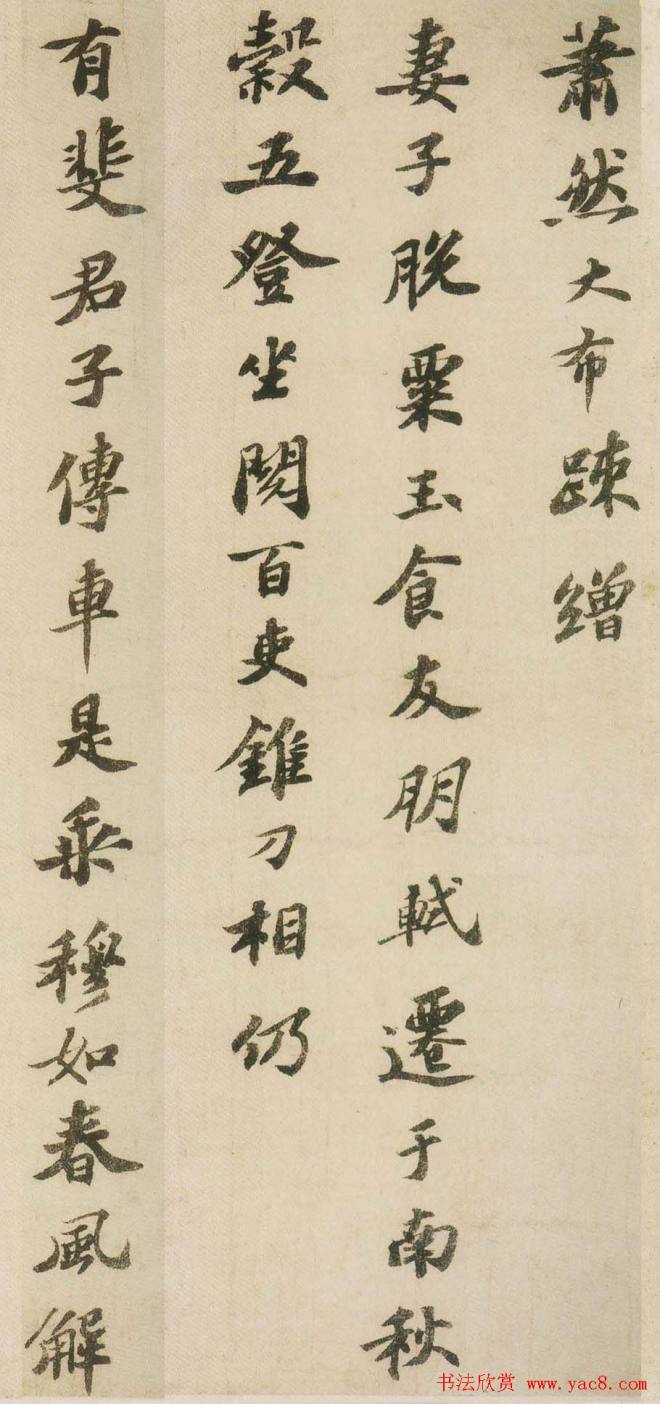 蕭然大布踈繒
妻子脫粟玉食友朋軾遷于南秋
穀五登坐閱百吏錐刀相仍
有斐君子傳車是乘穆如春風解
书法欣赏 www.yac8.com